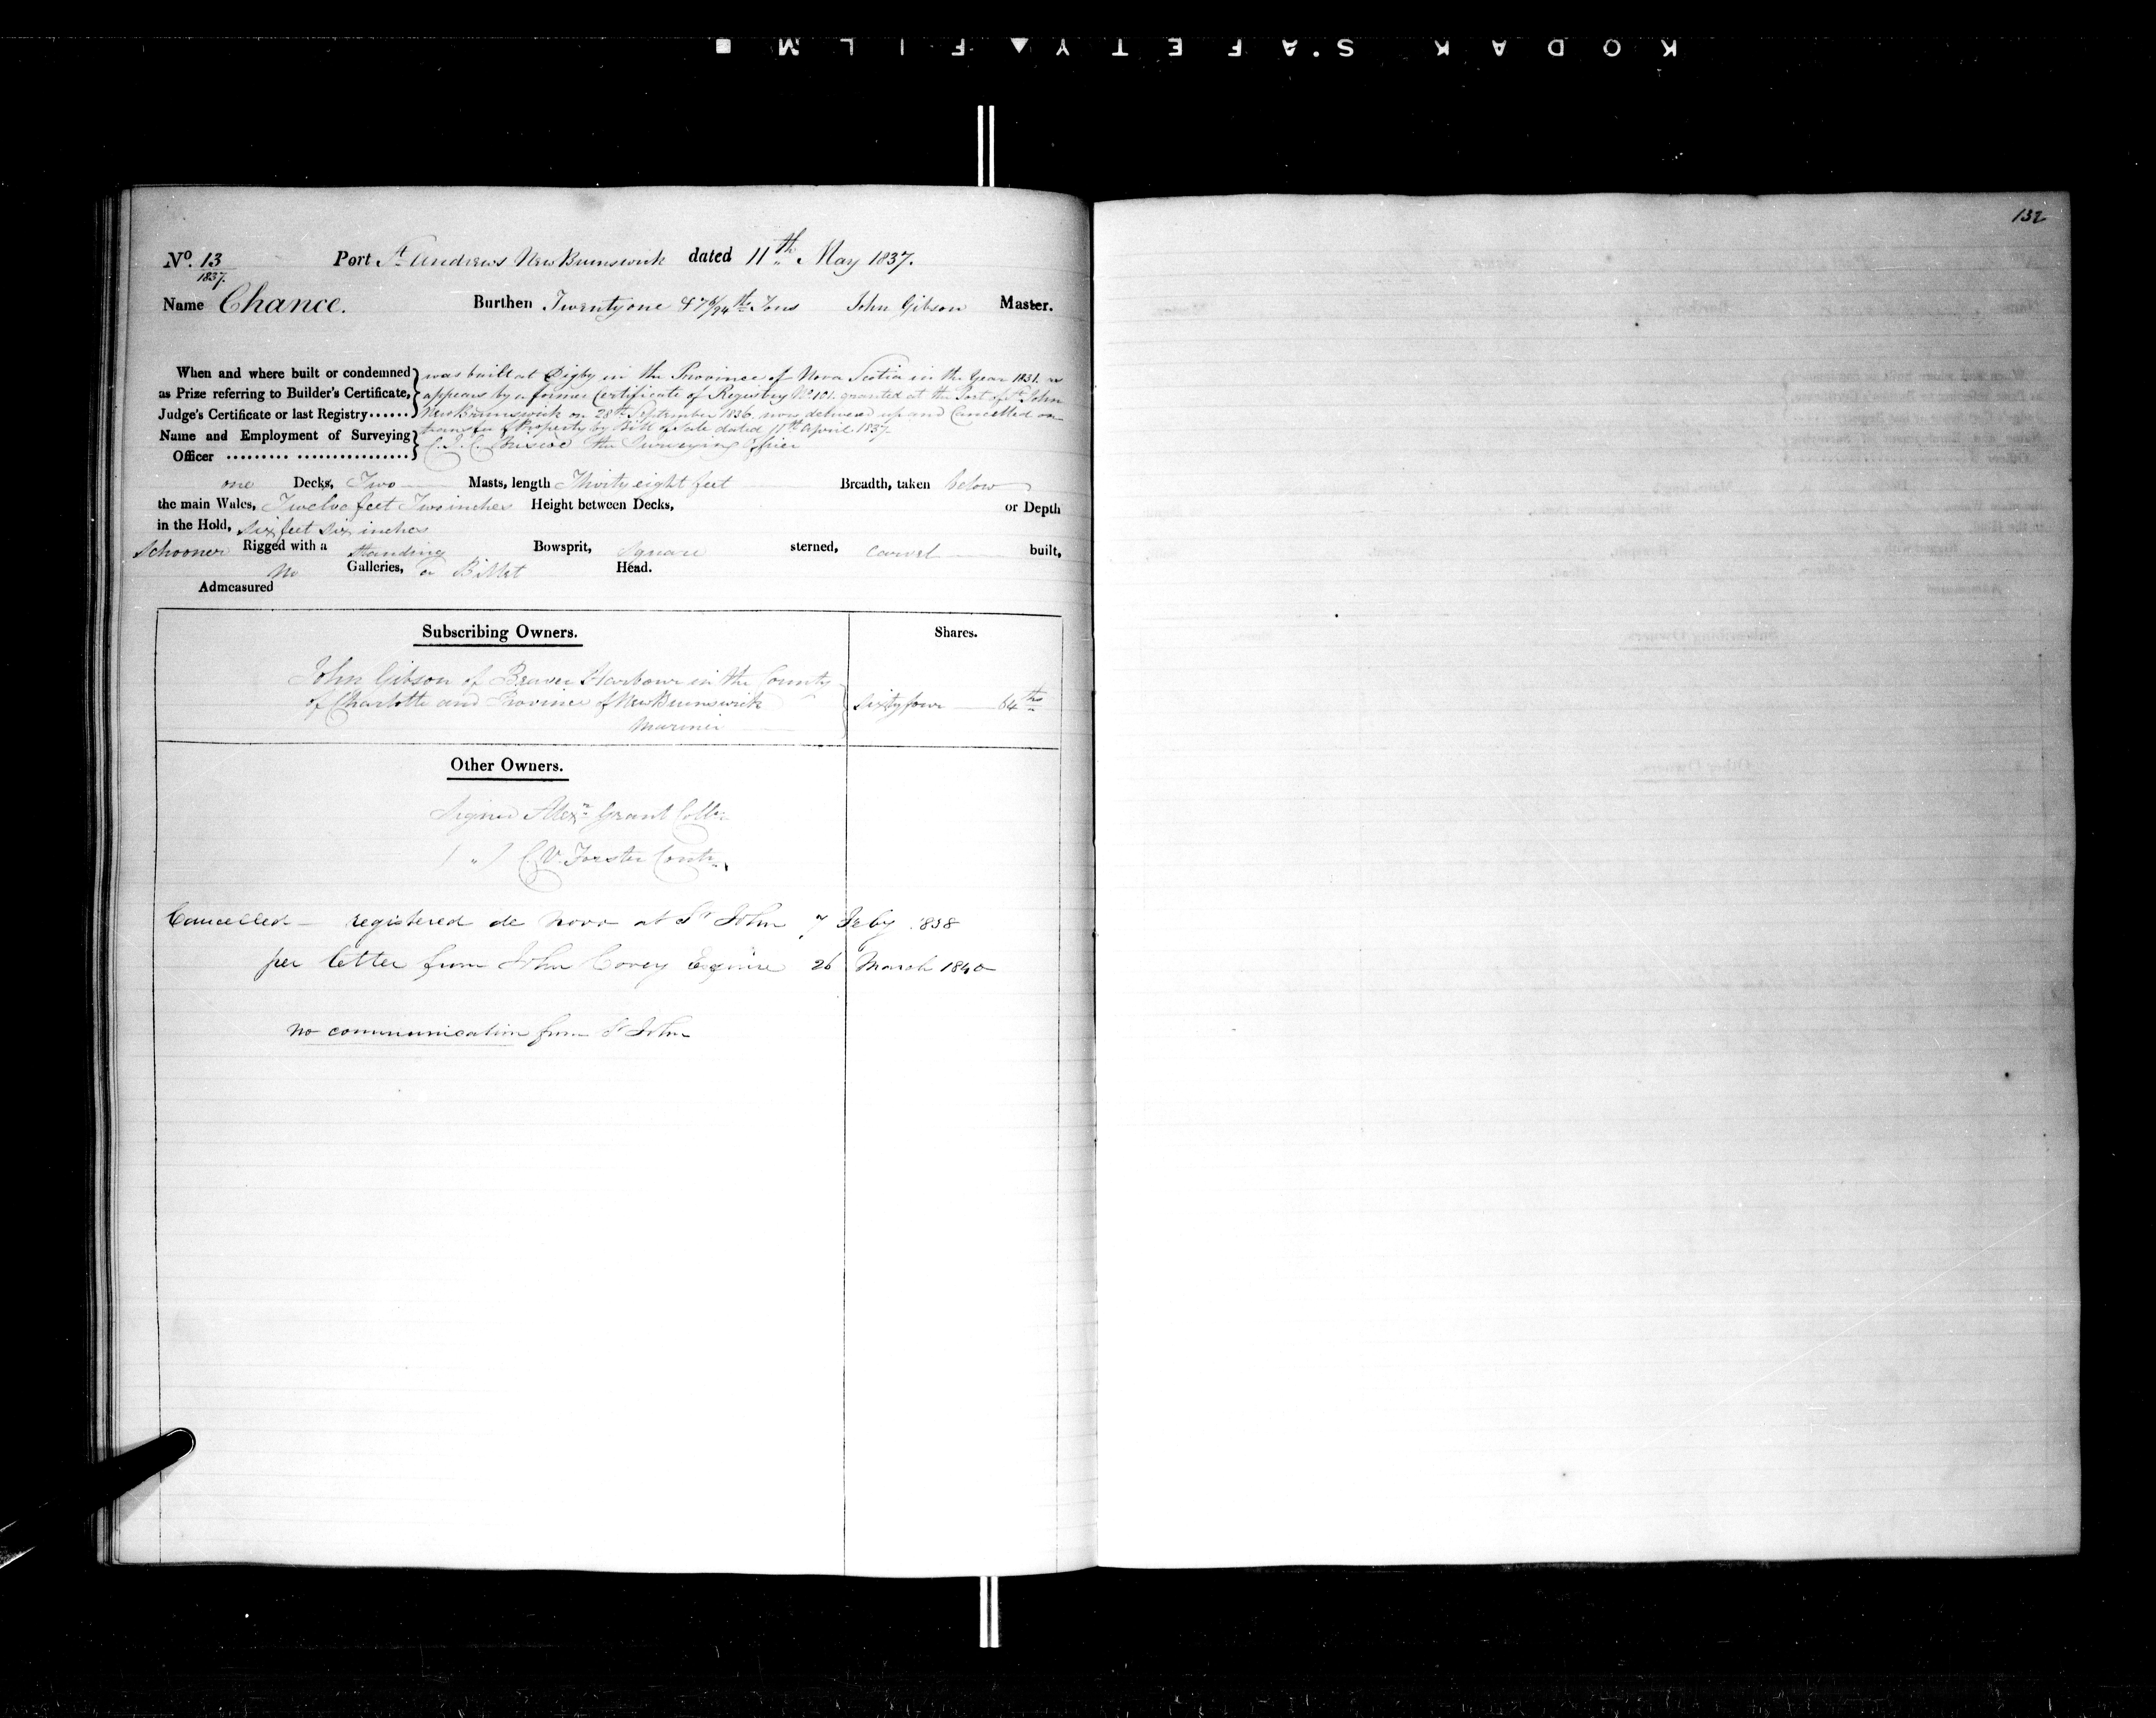 KODAK S.AFETY▲FILM ■
132
No. 13
1837.
Port St Andrews New Brunswick dated 11th May 1837.
Name Chance. Burthen Twenty one & Tons John Gibson Master.
When and where built or condemned was built at Digby in the Province of Nova Scotia in the Year 1831. as
as Prize referring to Builder's Certificate, appears by a former Certificate of Registry No 101. granted at the Port of St John
Judge's Certificate or last Registry...... New Brunswick on 28th September 1836. now delivered up and Cancelled on
transfer of Property by Bill of Sale dated 11th April 1837.
Name and Employment of Surveying
Officer C. J. C. Briscoe the Surveying Officer
one Decks, Two Masts, length Thirty eight feet Breadth, taken below
the main Wales, Twelve feet Two inches Height between Decks, or Depth
in the Hold, Six feet six inches
Schooner Rigged with a Standing Bowsprit, Square sterned, Carvel built,
No Galleries, or Billet Head.
Admeasured
Subscribing Owners. Shares.
John Gibson of Beaver Harbour in the County
of Charlotte and Province of New Brunswick Sixty four 64ths
Mariner
Other Owners.
Signed Alexr Grant Collr
( " ) C. V. Forster Contr
Cancelled — registered de novo at St John 7 Feby 1838
per letter from John Covey Esquire 26 March 1840
no communication from St John